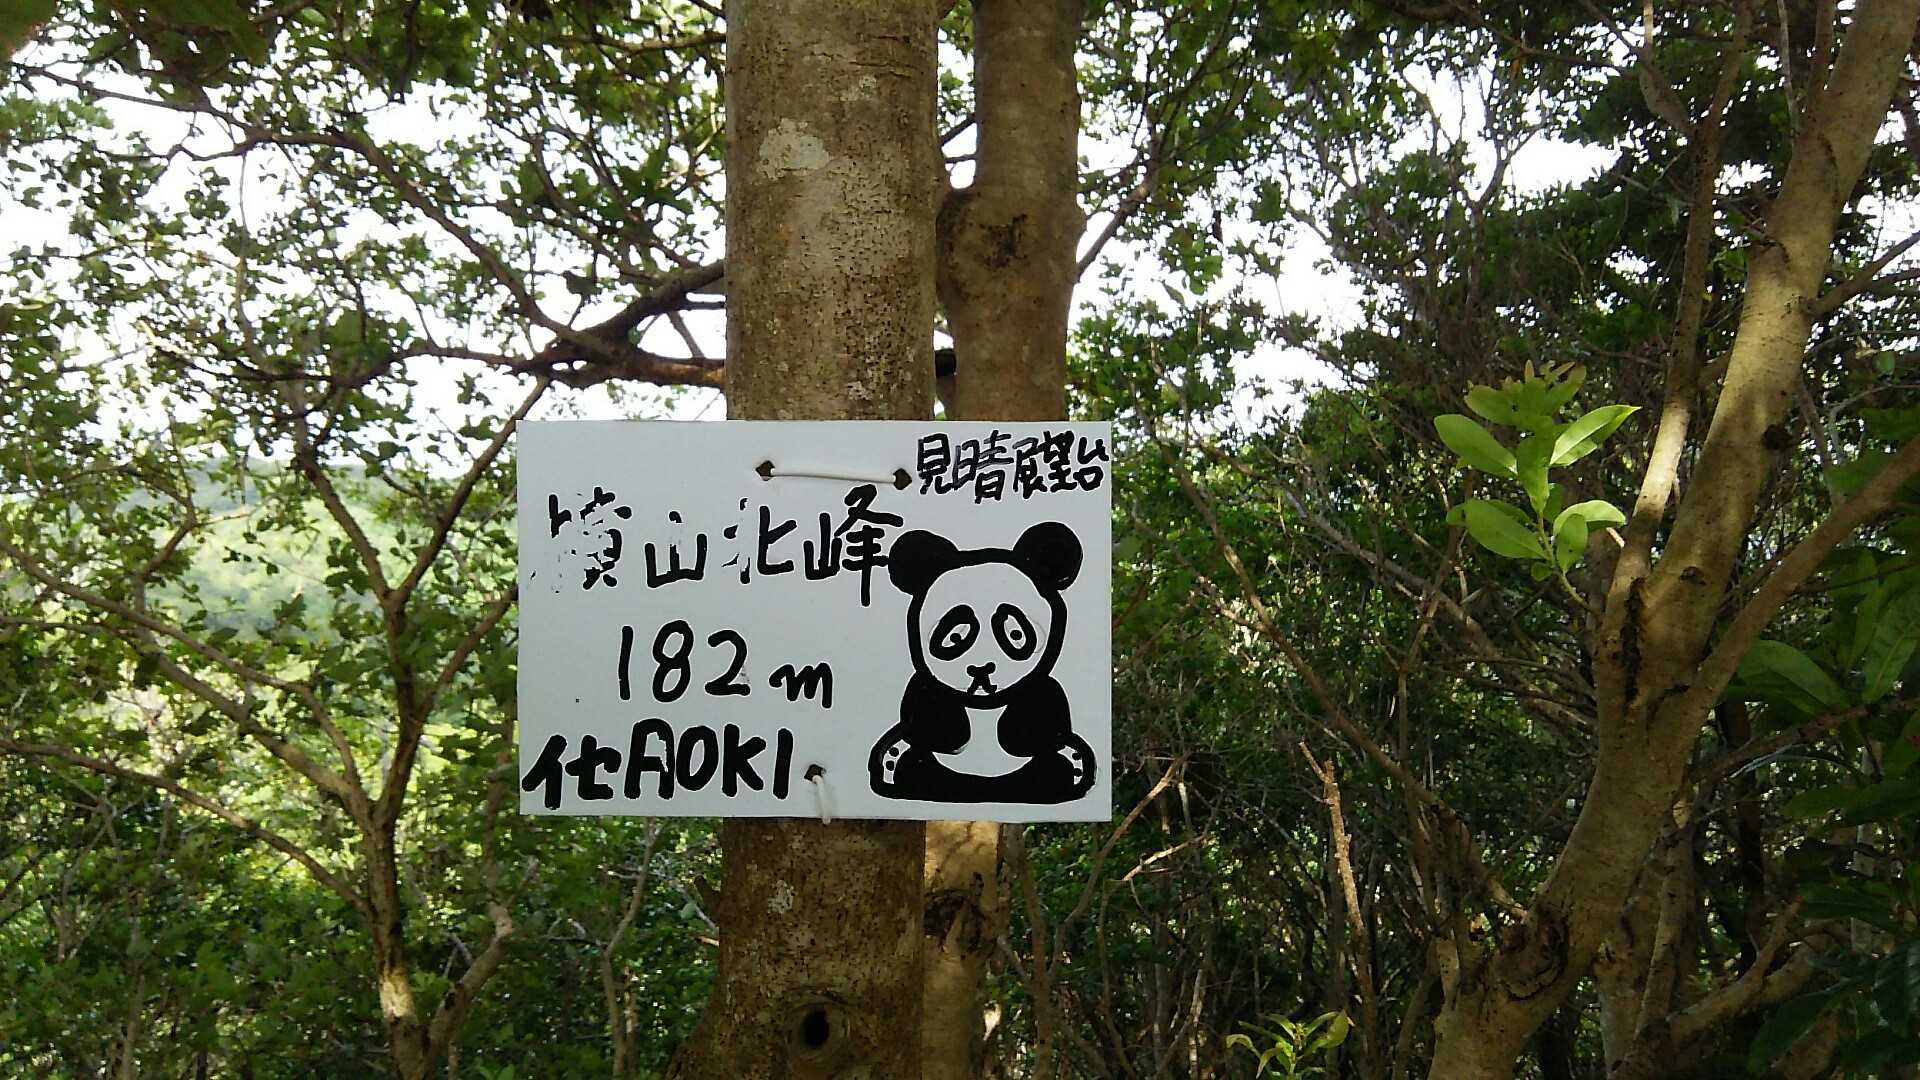 見晴展望台
横山北峰
182m
化AOKI